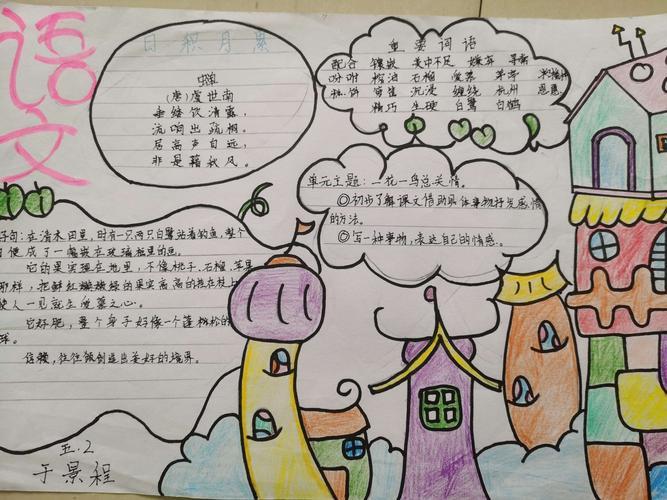 语文
日积月累
蝉
(唐)虞世南
垂緌饮清露,
流响出疏桐。
居高声自远,
非是藉秋风。
重要词语
配合 镶嵌 美中不足 嫌弃 寻常
吩咐 榨油 石榴 爱慕 茅亭
糕饼 寄居 沉浸 缠绕 杭州 恩惠
精巧 生硬 白鹭 白鹤
单元主题:一花一鸟总关情。
◎初步了解课文借助具体事物抒发感情
的方法。
◎写一种事物,表达自己的情感。
好句:在清水田里,时有一只两只白鹭站着钓鱼,整个
便成了一幅嵌在玻璃框里的
它的果实埋在地里,不像桃子、石榴、苹果
那样,把鲜红嫩绿的果实高高的挂在枝上
使人一见就生爱慕之心。
它好肥,整个身子好像一个蓬松的
球。
信赖,往往能创造出美好的境界。
五.2
于景程